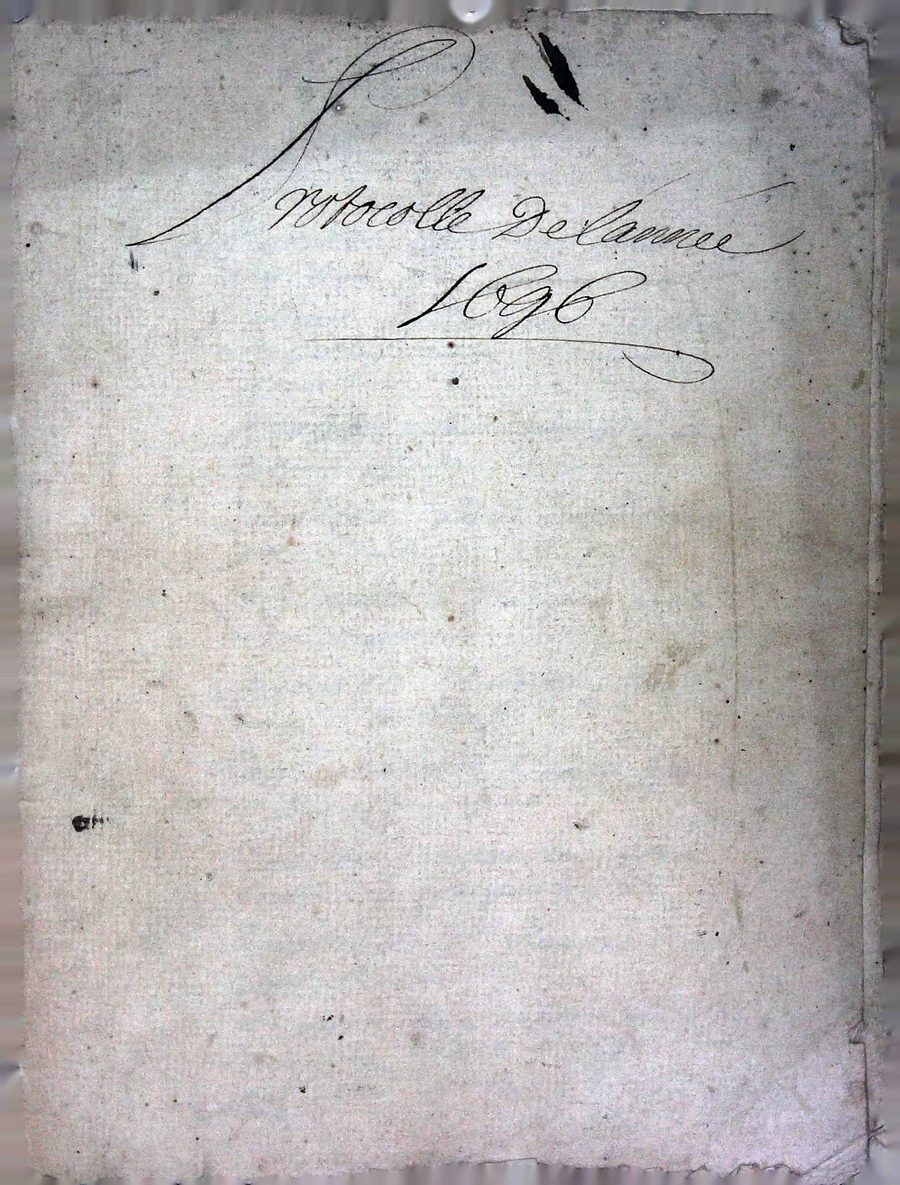 Protocolle De lannee
1696